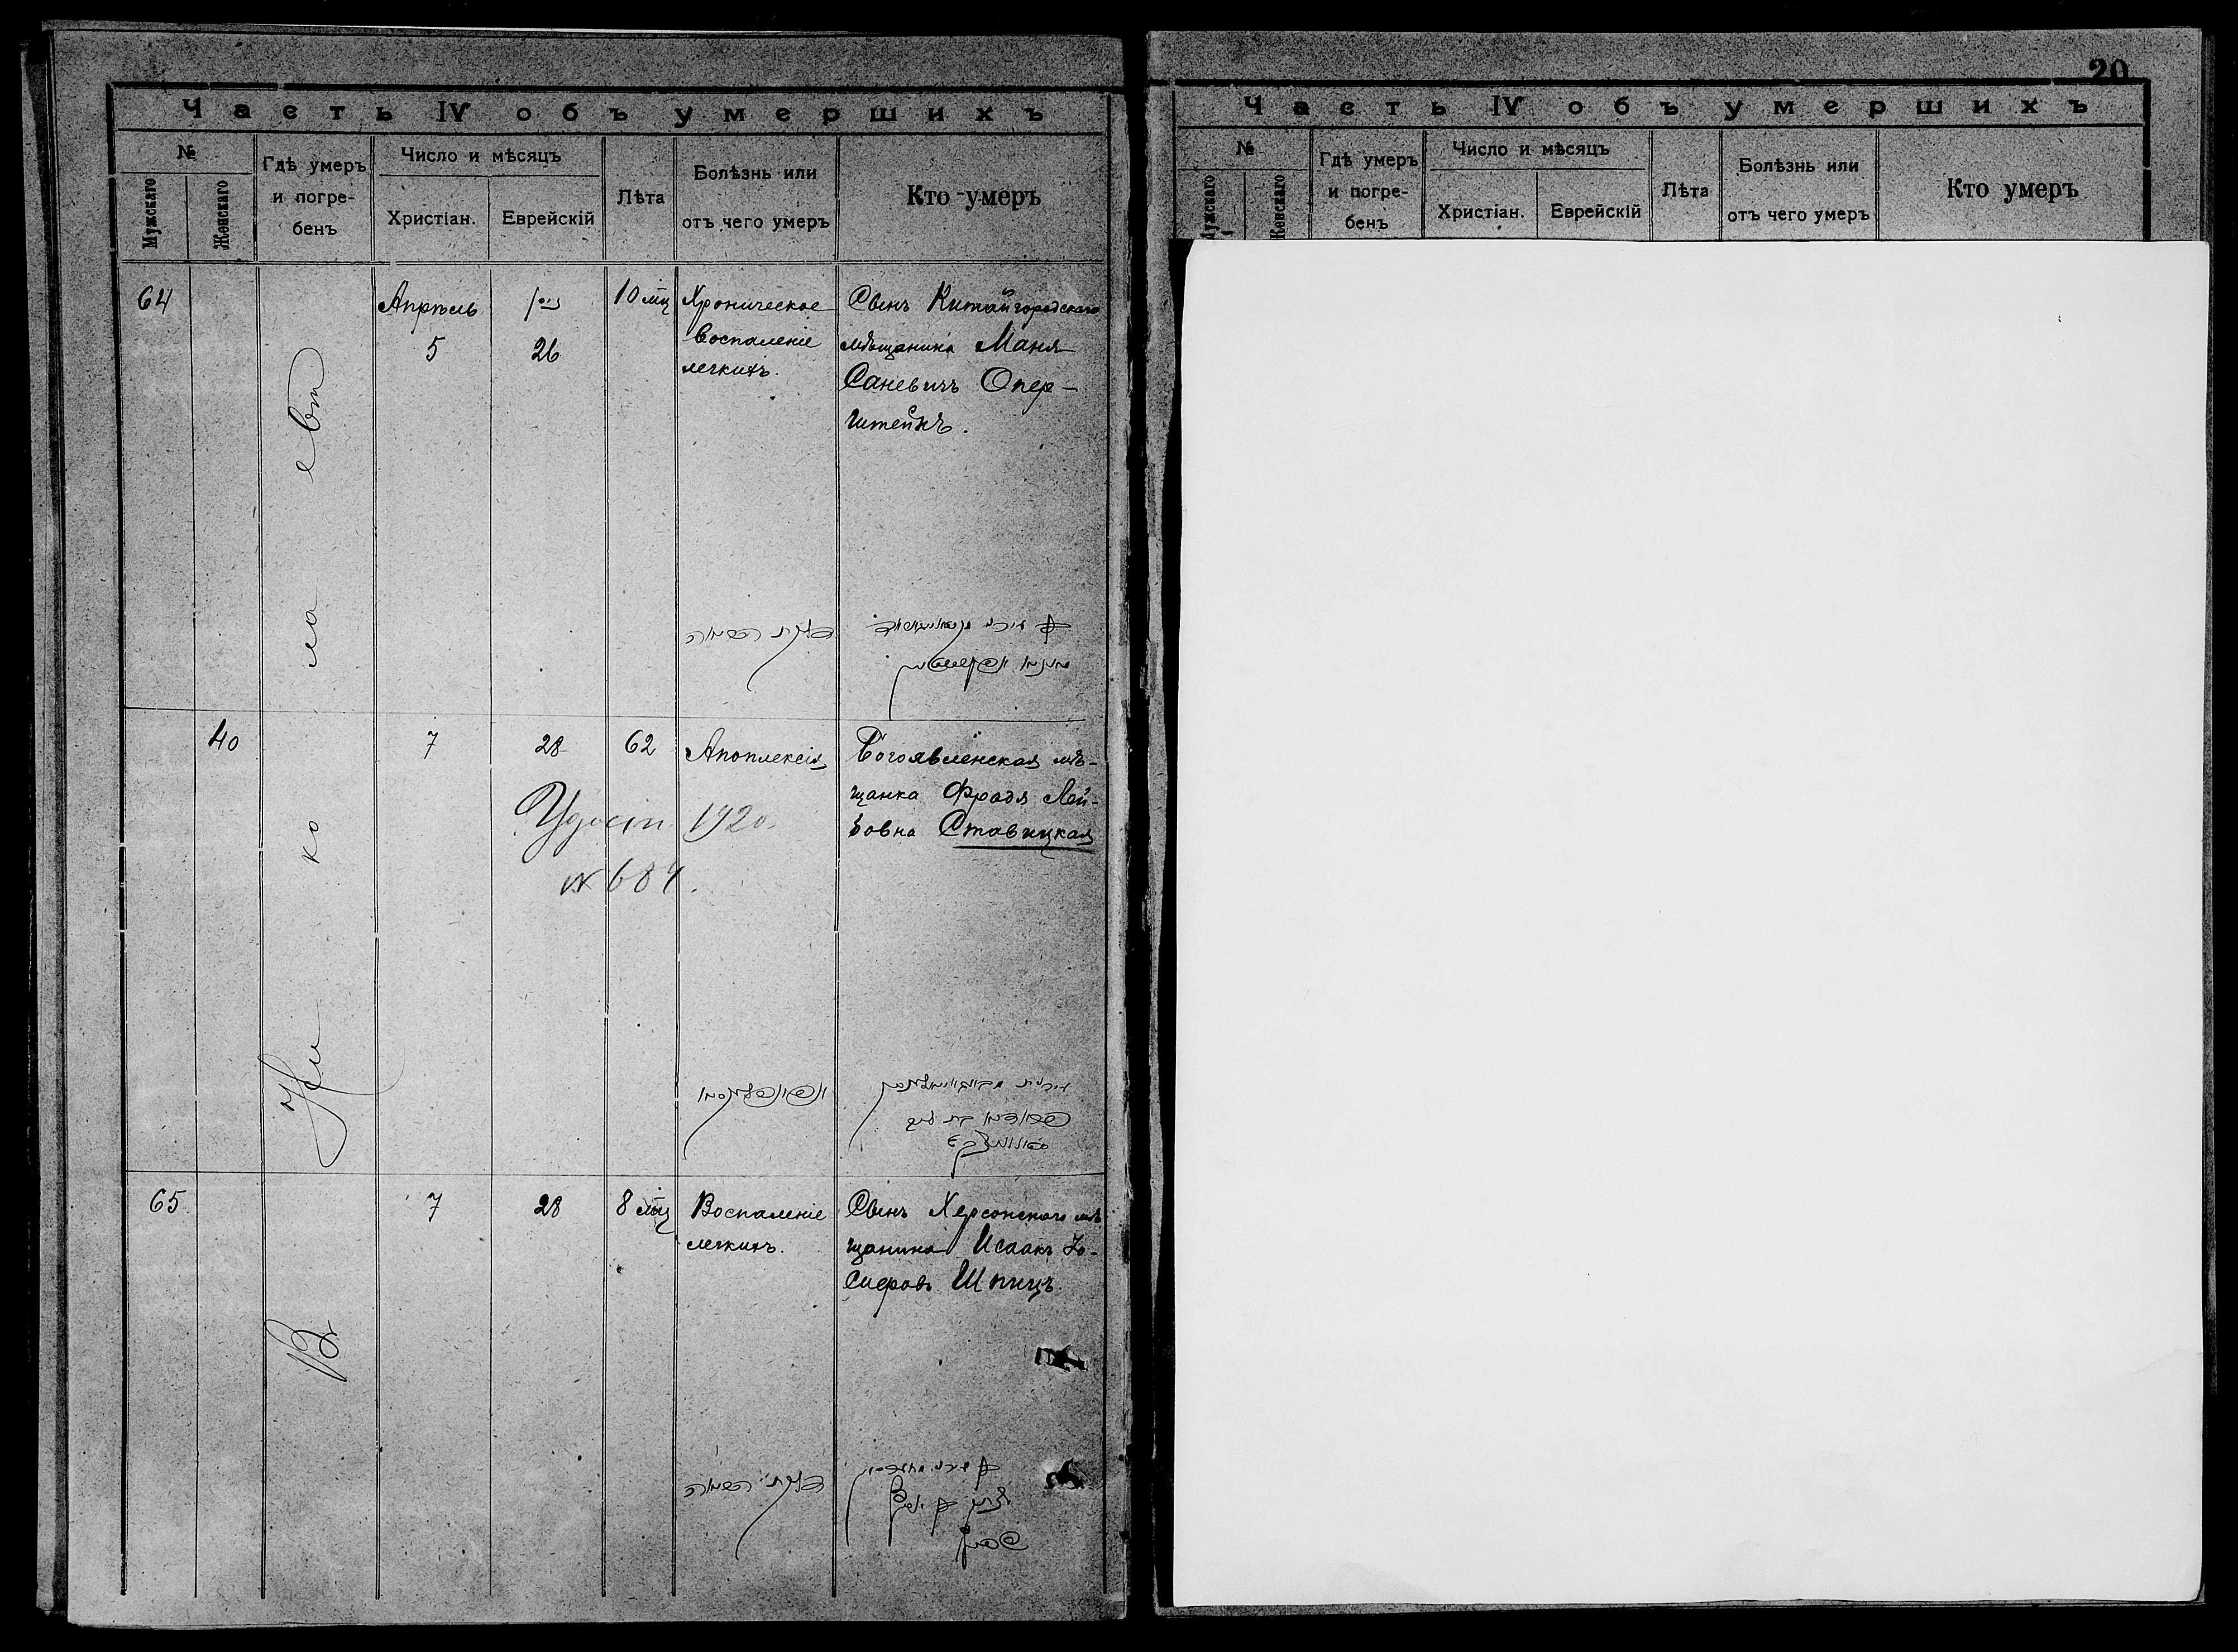 Часть IV объ умершихъ
№
Мужскаго
Женскаго
Гдѣ умеръ
и погре-
бенъ
Число и мѣсяцъ
Христіан.
Еврейскій
Лѣта
Болѣзнь или
отъ чего умеръ
Кто умеръ
Въ Николаевѣ
64
Апрѣль
5
ניסן
26
10 мц
Хроническое
воспаленіе
легкихъ.
Сынъ Китайгородскаго
мѣщанина Маня
Саневичъ Опер-
штейнъ.
40
7
28
62
Апоплексія
Богоявленская мѣ-
щанка Фрадя Лей-
бовна Ставицкая
Удост. 1920.
№ 684.
65
7
28
8 мц
Воспаленіе
легкихъ.
Сынъ Херсонскаго мѣ
щанина Исаакъ Іо-
сифовъ Шпицъ
20
Часть IV объ умершихъ
№
Мужскаго
Женскаго
Гдѣ умеръ
и погре-
бенъ
Число и мѣсяцъ
Христіан.
Еврейскій
Лѣта
Болѣзнь или
отъ чего умеръ
Кто умеръ